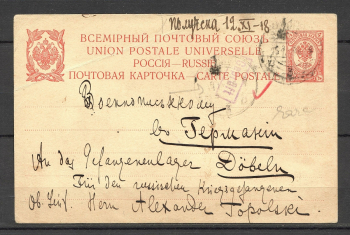 Получена 12 XI-18
ВСЕМІРНЫЙ ПОЧТОВЫЙ СОЮЗЪ
UNION POSTALE UNIVERSELLE
РОССІЯ—RUSSIE
ПОЧТОВАЯ КАРТОЧКА—CARTE POSTALE
Военноплѣнному
въ Германіи
An das Gefangenenlager Döbeln
Für den russischen Kriegsgefangenen
Herrn Alexander Topolski